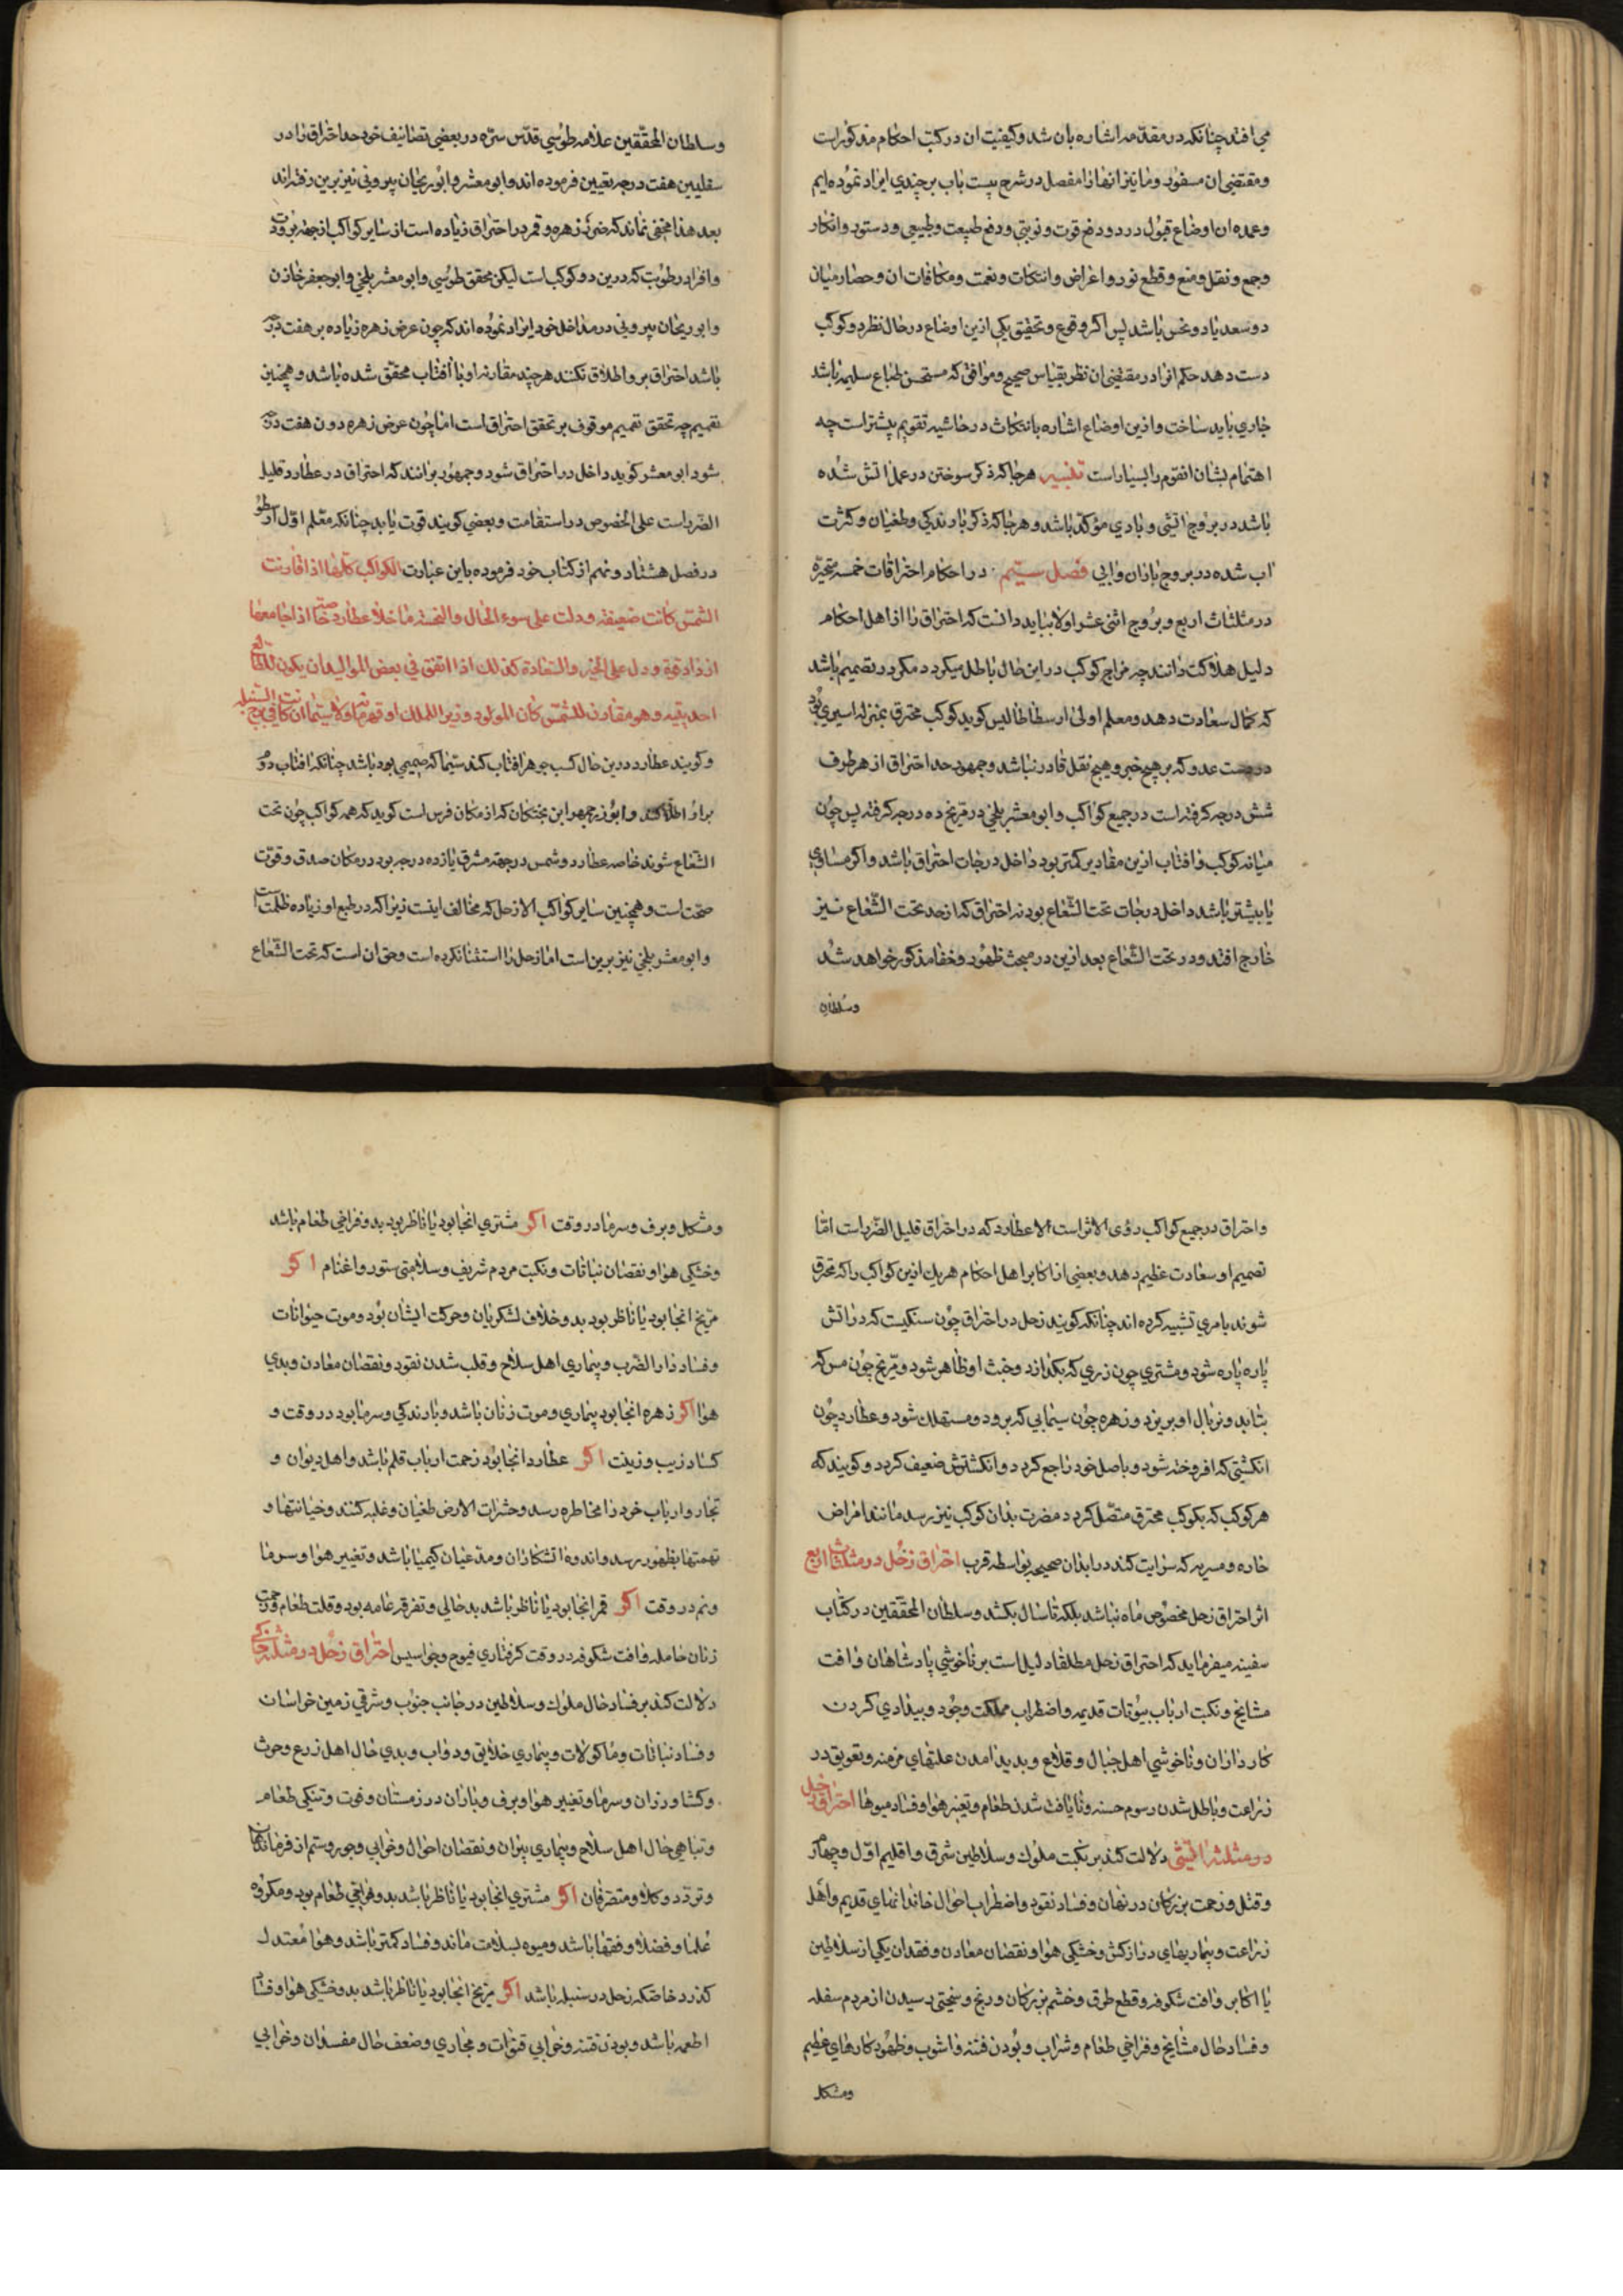 می افتد چنانکه در مقدمه اشاره بان شد و کیفیت ان در کتب احکام مذکور است
و مقتضی ان مسفور و ما نیز انها را مفصل در شرح بیست باب برجندی ایراد نموده ایم
و عمده ان اوضاع قبول در ردود دفع قوت و نوبتی و دفع طبیعت و طبیعی و دستور و انکار
و جمع و نقل و منع و قطع نور و اعراض و انتکاث و نعمت و مکافات ان و حصار میان
دو سعد یا دو نحس باشد پس اکر وقوع و تحقیق یکی ازین اوضاع در حال نظر دو کوکب
دست دهد حکم انرا در مقتضی ان نظر بقیاس صحیح و موافق که مستحسن طباع سلیمه باشد
جاری باید ساخت و ازین اوضاع اشاره بانتکاث در حاشیه تقویم بیشتر است چه
اهتمام بشان انقوم را بسیار است تفسیر هر جا که ذکر سوختن در عمل اتش شده
باشد در بروج اتشی و بادی مؤکد باشد و هر جا که ذکر بارندکی و طغیان و کثرت
اب شده در بروج باران و ابی فصل سیم در احکام احتراقات خمسه متحیّره
در مثلثات اربع و بروج اثنی عشر اولا بباید دانست که احتراق را از اهل احکام
دلیل هلاکت دانند چه مزاج کوکب در این حال باطل میکردد مکر در تصمیم باشد
که کمال سعادت دهد و معلم اولی ارسطاطالیس کوید کوکب محترق بمنزله اسیری بود
در دست عدو که بر هیچ خبر و هیچ نقل قادر نباشد و جمهور حد احتراق از هر طرف
شش درجه کرفته است در جمیع کواکب و ابو معشر بلخی در مریخ ده درجه کرفته پس چون
میانه کوکب و افتاب ازین مقادیر کمتر بود داخل درجات احتراق باشد و اکر مساوی
یا بیشتر باشد داخل درجات تحت الشعاع بود نه احتراق که از حد تحت الشعاع نیز
خارج افتد و در تحت الشعاع بعد ازین در مبحث ظهور و خفا مذکور خواهد شد
و سلطان
و سلطان المحققین علامه طوسی قدس سره در بعضی تصانیف خود حد احتراق را در
سفلیین هفت درجه تعیین فرموده اند و ابو معشر و ابو ریحان بیرونی نیز برین رفته اند
بعد هذا مخفی نماند که ضرر زهره و قمر در احتراق زیاده است از سایر کواکب از جهة برودت
و افراد رطوبت که درین دو کوکب است لیکن محقق طوسی و ابو معشر بلخی و ابو جعفر خازن
و ابو ریحان بیرونی در مداخل خود ایراد نموده اند که چون عرض زهره زیاده بر هفت درجه
باشد احتراق بر و اطلاق نکنند هر چند مقارنه او با افتاب محقق شده باشد و همچنین
تصمیم چه تحقق تصمیم موقوف بر تحقق احتراق است اما چون عرض زهره دون هفت درجه
شود ابو معشر کوید داخل در احتراق شود و جمهور برانند که احتراق در عطارد قلیل
الضرر است علی الخصوص در استقامت و بعضی کویند قوت یابد چنانکه معلم اول ارسطو
در فصل هشتاد و نهم از کتاب خود فرموده باین عبارت الکواکب کلها اذا قارنت
الشمس کانت ضعیفه و دلت علی سوء الحال والنحسه ما خلا عطارد حتما اذا جامعها
ازداد قوة و دل علی الخیر والسعادة کذلک اذا اتفق فی بعض الموالید ان یکون للطالع
احد بیتیه و هو مقارن للشمس کان المولود وزیرا للملک او قهرمانا ولا سیما ان کانت فی برج السنبله
و کویند عطارد درین حال کسب جوهر افتاب کند سیما که صمیمی بود باشد چنانکه افتاب دوم
برو اطلاق کنند و ابوزرجمهر ابن بختکان که از مکان فرس است کوید که همه کواکب چون تحت
الشعاع شوند خاصه عطارد و شمس در جهة مشرق یازده درجه بود در مکان صدق و قوت
صحت است و همچنین سایر کواکب الا زحل که مخالف اینست زیرا که در طبع او زیاده ظلمت است
و ابو معشر بلخی نیز برین است اما زحل را استثنا نکرده است و حق ان است که تحت الشعاع
و احتراق در جمیع کواکب ردی الاثر است الا عطارد که در احتراق قلیل الضرر است امّا
تصمیم او سعادت عظیم دهد و بعضی از اکابر اهل احکام هر یک ازین کواکب را که محترق
شوند بامری تشبیه کرده اند چنانکه کویند زحل در احتراق چون سنکیست که در اتش
پاره پاره شود و مشتری چون زری که بکدازد و خبث او ظاهر شود و مریخ چون مس که
بتابد و نربال او بریزد و زهره چون سیمابی که برود و مستهلک شود و عطارد چون
انکشتی که افروخته شود و باصل خود راجع کردد و انکشتش ضعیف کردد و کویند که
هر کوکب که بکوکب محترق متصل کردد مضرت بدان کوکب نیز رسد مانند امراض
حاره و مسریه که سرایت کند در ابدان صحیحه بواسطه قرب احتراق زحل در مثلثات اربع
اثر احتراق زحل مخصوص ماه نباشد بلکه تا سال بکشد و سلطان المحققین در کتاب
سفینه میفرماید که احتراق زحل مطلقا دلیل است بر ناخوشی پادشاهان و افت
مشایخ و نکبت ارباب بیوتات قدیمه و اضطراب مملکت وجود و بیدادی کردن
کارداران و ناخوشی اهل جبال و قلاع و بدید امدن علتهای مزمنه و تعویق در
زراعت و باطل شدن رسوم حسنه و نایافت شدن طعام و تغییر هوا و فساد میوها احتراق زحل
در مثلثه اتشی دلالت کند بر نکبت ملوک و سلاطین شرق و اقلیم اول و چهارم
و قتل و زحمت بزرکان در نهان و فساد نقود و اضطراب احوال خاندانهای قدیم و اهل
زراعت و بیماریهای دراز کش و خشکی هوا و نقصان معادن و فقدان یکی از سلاطین
یا اکابر و افت شکوفه و قطع طرق و خشم بزرکان و رنج و سختی رسیدن از مردم سفله
و فساد حال مشایخ و فراخی طعام و شراب و بودن فتنه و اشوب و ظهور کارهای عظیم
و مشکل
و مشکل و برف و سرما در وقت اکر مشتری انجا بود یا ناظر بود بد و فراخی طعام باشد
و خشکی هوا و نقصان نباتات و نکبت مردم شریف و سلامتی ستور و اغنام اکر
مریخ انجا بود یا ناظر بود بد و خلاف لشکریان و حرکت ایشان بود و موت حیوانات
و فساد دار الضرب و بیماری اهل سلاح و قلب شدن نقود و نقصان معادن و بدی
هوا اکر زهره انجا بود بیماری و موت زنان باشد و بارندکی و سرما بود در وقت و
کساد زیب و زینت اکر عطارد انجا بود زحمت ارباب قلم باشد و اهل دیوان و
تجار و ارباب خرد را مخاطره رسد و حشرات الارض طغیان و غلبه کنند و خیانتها و
تهمتها بظهور رسد و اندوه اتشکاران و مدعیان کیمیا باشد و تغییر هوا و سرما
و نم در وقت اکر قمر انجا بود یا ناظر باشد بد حالی و تفرقه عامه بود و قلت طعام و زحمت
زنان حامله و افت شکوفه در وقت کرفتاری فیوج و جواسیس احتراق زحل در مثلثه خاکی
دلالت کند بر فساد حال ملوک و سلاطین در جانب جنوب و شرقی زمین خراسان
و فساد نباتات و ماکولات و بیماری خلایق و دواب و بدی حال اهل زرع و حرث
و کشاورزان و سرما و تغییر هوا و برف و باران در زمستان و فوت و تنکی طعام
و تباهی حال اهل سلاح و بیماری پیران و نقصان احوال و خرابی و جور و ستم از فرمانکاران
و تردد و کلا و متصرفان اکر مشتری انجا بود یا ناظر باشد بد و فراخی طعام بود و مکروه
علما و فضلا و فقها باشد و میوه بسلامت ماند و فساد کمتر باشد و هوا معتدل
کذرد خاصکه زحل در سنبله باشد اکر مریخ انجا بود یا ناظر باشد بد و خشکی هوا و فساد
اطعمه باشد و بودن فتنه و خرابی قنوات و مجاری و ضعف حال مفسدان و خرابی